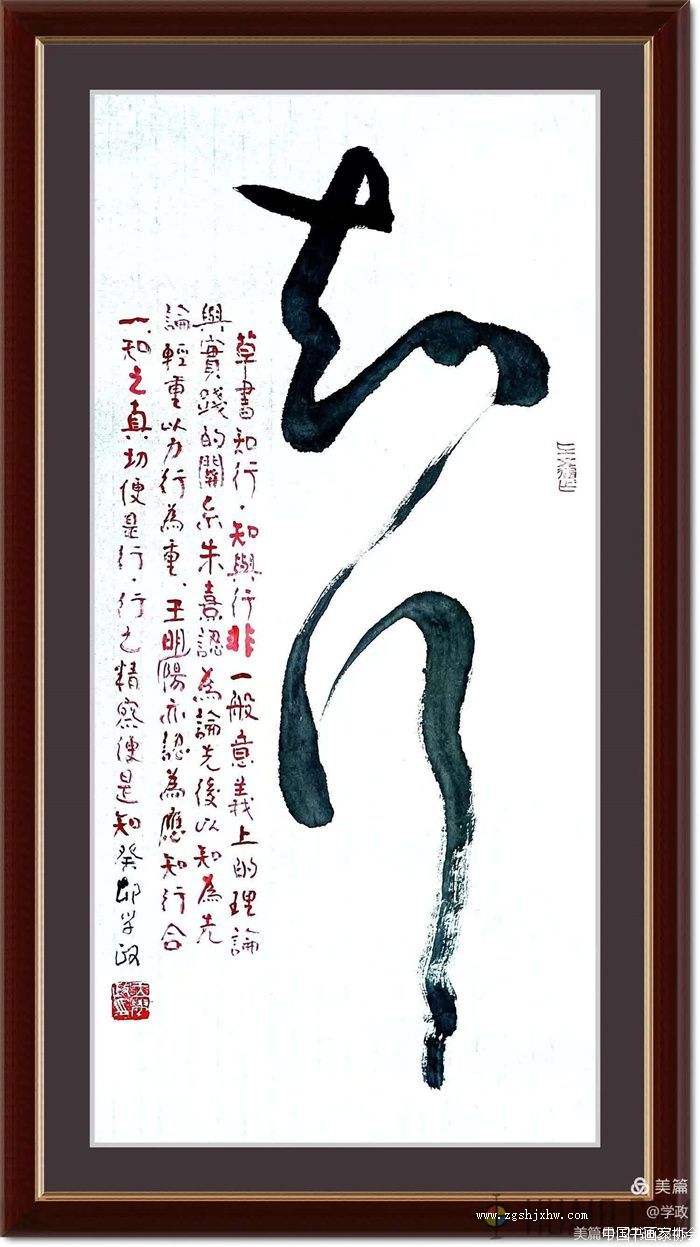 知行
草書知行·知與行非一般意義上的理論
與實踐的關系朱熹認為論先後以知為先
論輕重以力行為重、王明陽亦認為應知行合
一、知之真切便是行·行之精察便是知癸卯学政
美篇
@学政
www.zgshjxhw.com
中国书画家协会